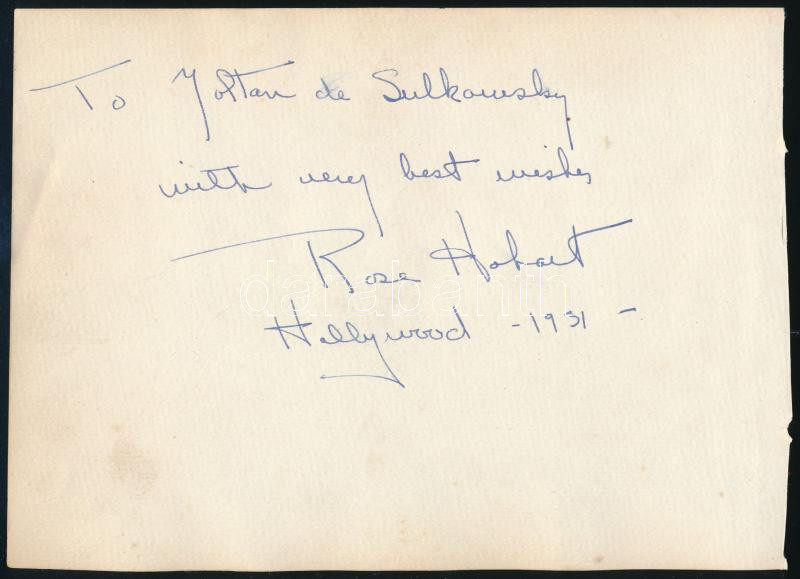 To Zoltan de Sulkowsky
with very best wishes
Rose Hobart
darabanth
Hollywood - 1931 -